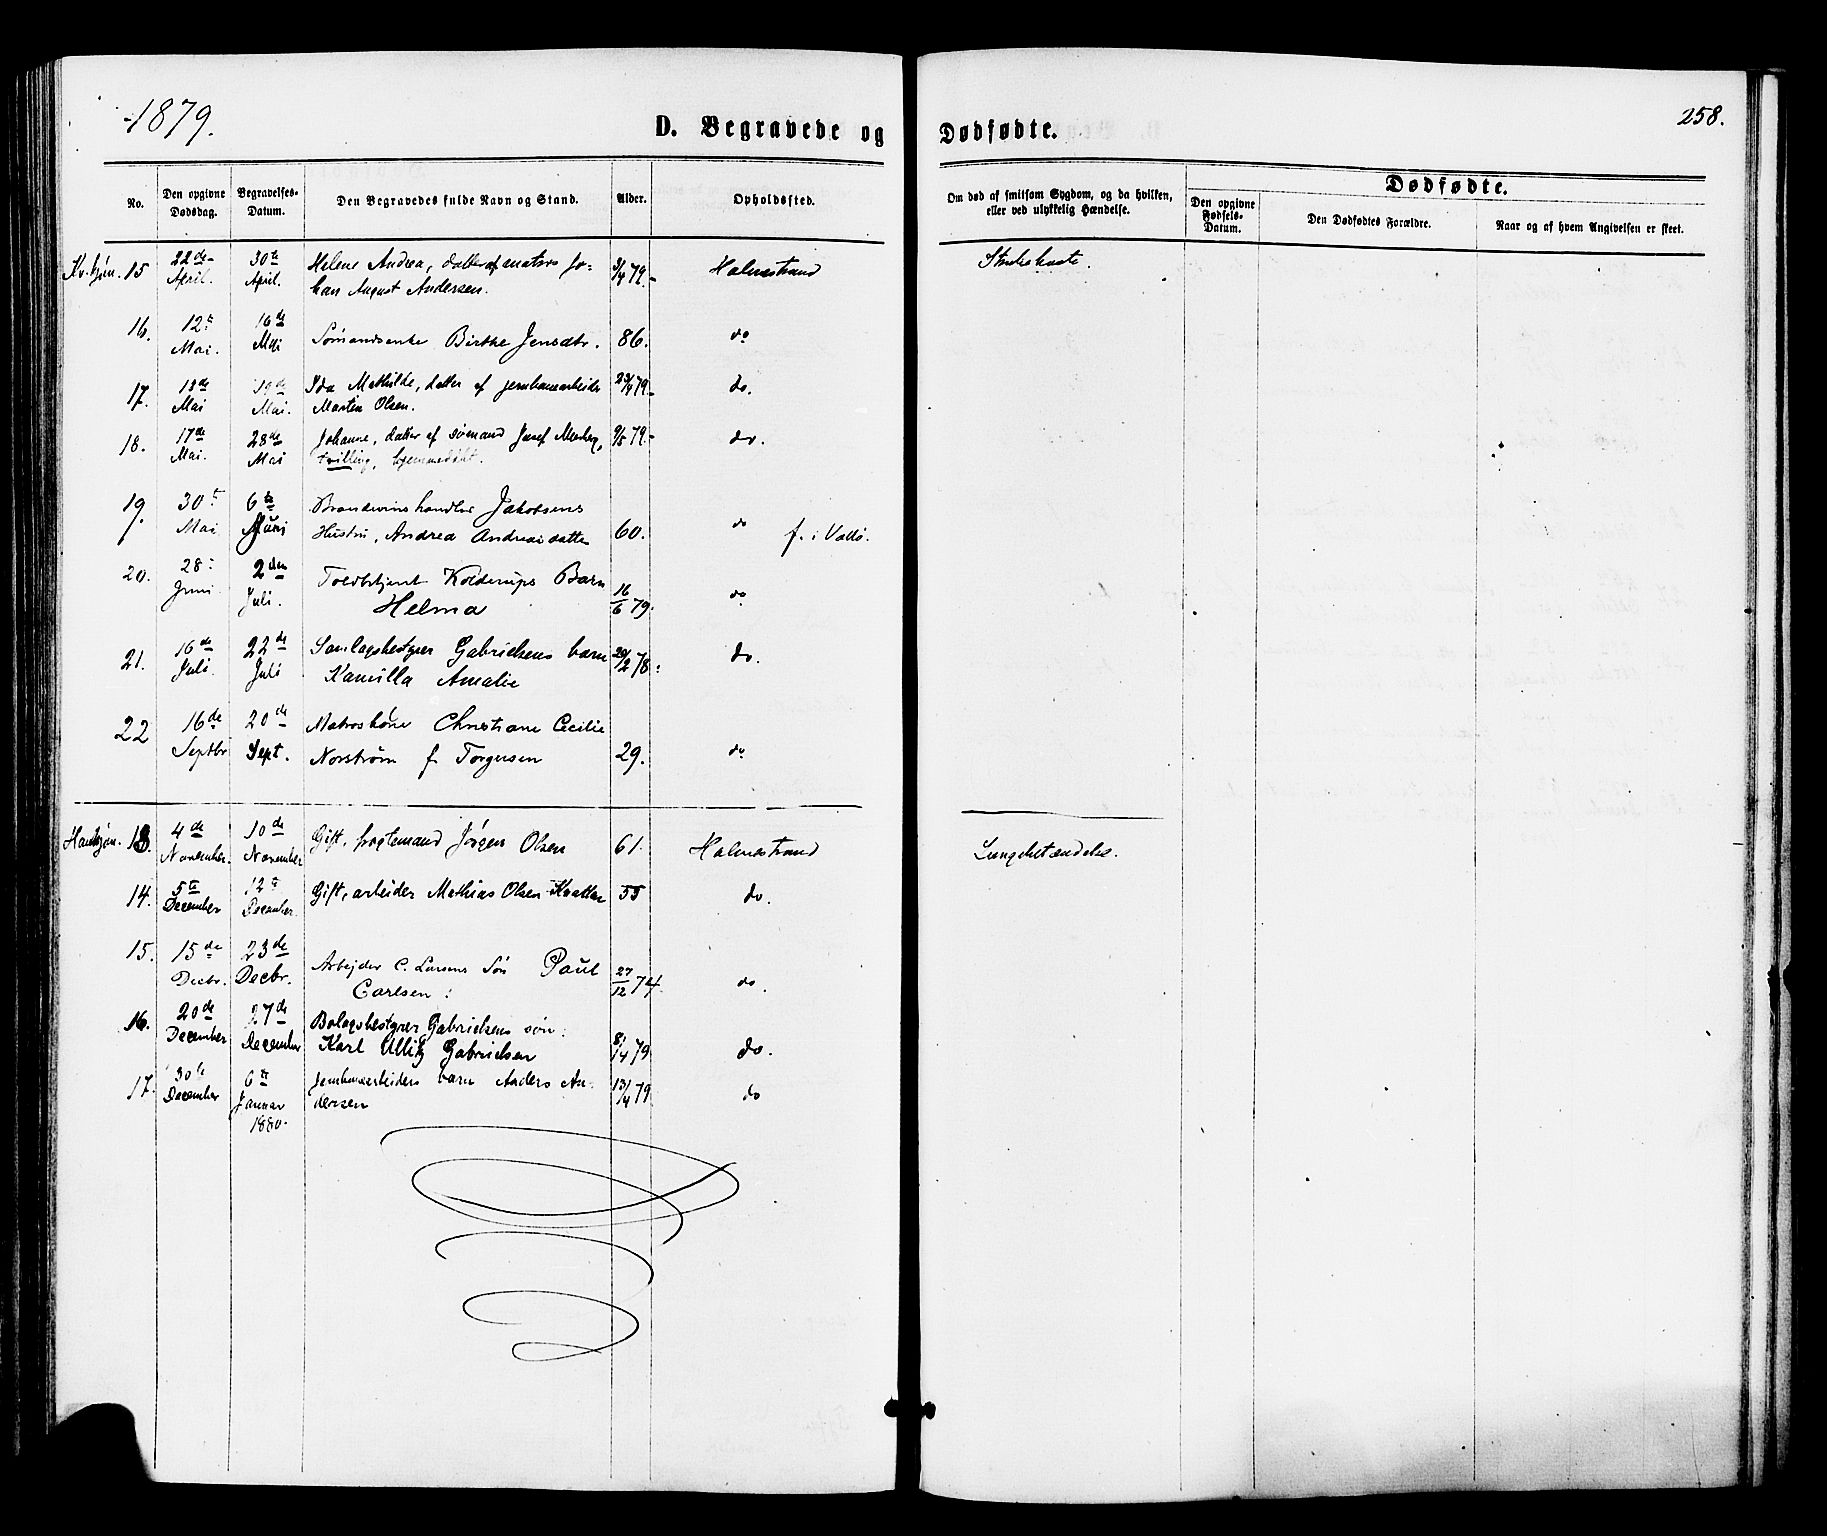 1879.
258.
D. Begravede og Dødfødte.
No.
Den opgivne Dødsdag.
Begravelses-Datum.
Den Begravedes fulde Navn og Stand.
Alder.
Opholdssted.
Om død af smitsom Sygdom, og da hvilken,
eller ved ulykkelig Hændelse.
Dødfødte.
Den opgivne Fødsels-Datum.
Den Dødfødtes Forældre.
Naar og af hvem Angivelsen er skeet.
Kv.kjøn. 15 22de April. 30te April. Helene Andrea, datter af matros Jo=
han August Andersen. 79. Holmestrand
16. 12te Mai. 16de Mai Sømandsenke Birthe Jensdtr. 86. do
17. 18de Mai Mai. Ida Mathilde, datter af jernbanearbeider
Martin Olsen. 79. do.
18. 17de Mai. 28de Mai Johanne, datter af sømand Josef
tvilling, hjemmedøbt. 9/5 79. do.
19. 30te Mai 6te Juni Brændevinshandler Jakobsens
Hustru, Andrea Andreasdatter 60. do f. i Vallø.
20. 28 Juni 2den Juli. Toldbetjent Kolderups Barn
Helma 16/6 79. do
21. 16de Juli. 22de Juli Samlagsbestyrer Gabrielsens barn
Kamilla Amalie 78. do.
22 16de Septbr 20de Sept. Matroskone Christiane Cecilie
Norstrøm f. Torgersen 29. do
Hankjøn. 13. 4de November. 10de November Gift, fragtemand Jörgen Olsen 61. Holmestrand Lungebetændelse.
14. 5te December 12te December. Gift, arbeider Mathias Olsen 55 do.
15. 15de Decbr. 23de Decbr. Arbejder C. Larsens Søn Paul
Carlsen. 27/12 74. do.
16. 20de December 27de December Bolagsbestyrer Gabrielsens søn
Karl Gabrielsen 79 do.
17. 30te December 6te Januar 1880. Jernbanearbeiders barn Anders An-
dersen 79 do